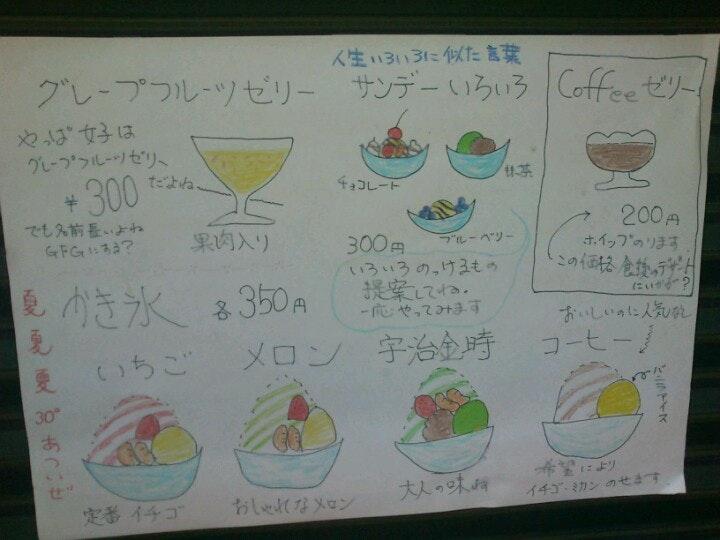 グレープフルーツゼリー
やっぱ女子は
グレープフルーツゼリー
だよね
¥300
でも名前長いよね
GFGにする?
果肉入り
人生いろいろに似た言葉
サンデーいろいろ
チョコレート
抹茶
ブルーベリー
300円
いろいろのっけるもの
提案してね。
一応やってみます
Coffeeゼリー
200円
ホイップのります
この価格 食後のデザート
にいかが?
夏
夏
夏
30°
あついぜ
かき氷 各350円
いちご
定番イチゴ
メロン
おしゃれなメロン
宇治金時
大人の味ね
おいしいのに人気なし
コーヒー
バニラアイス
希望により
イチゴ・ミカンのせます